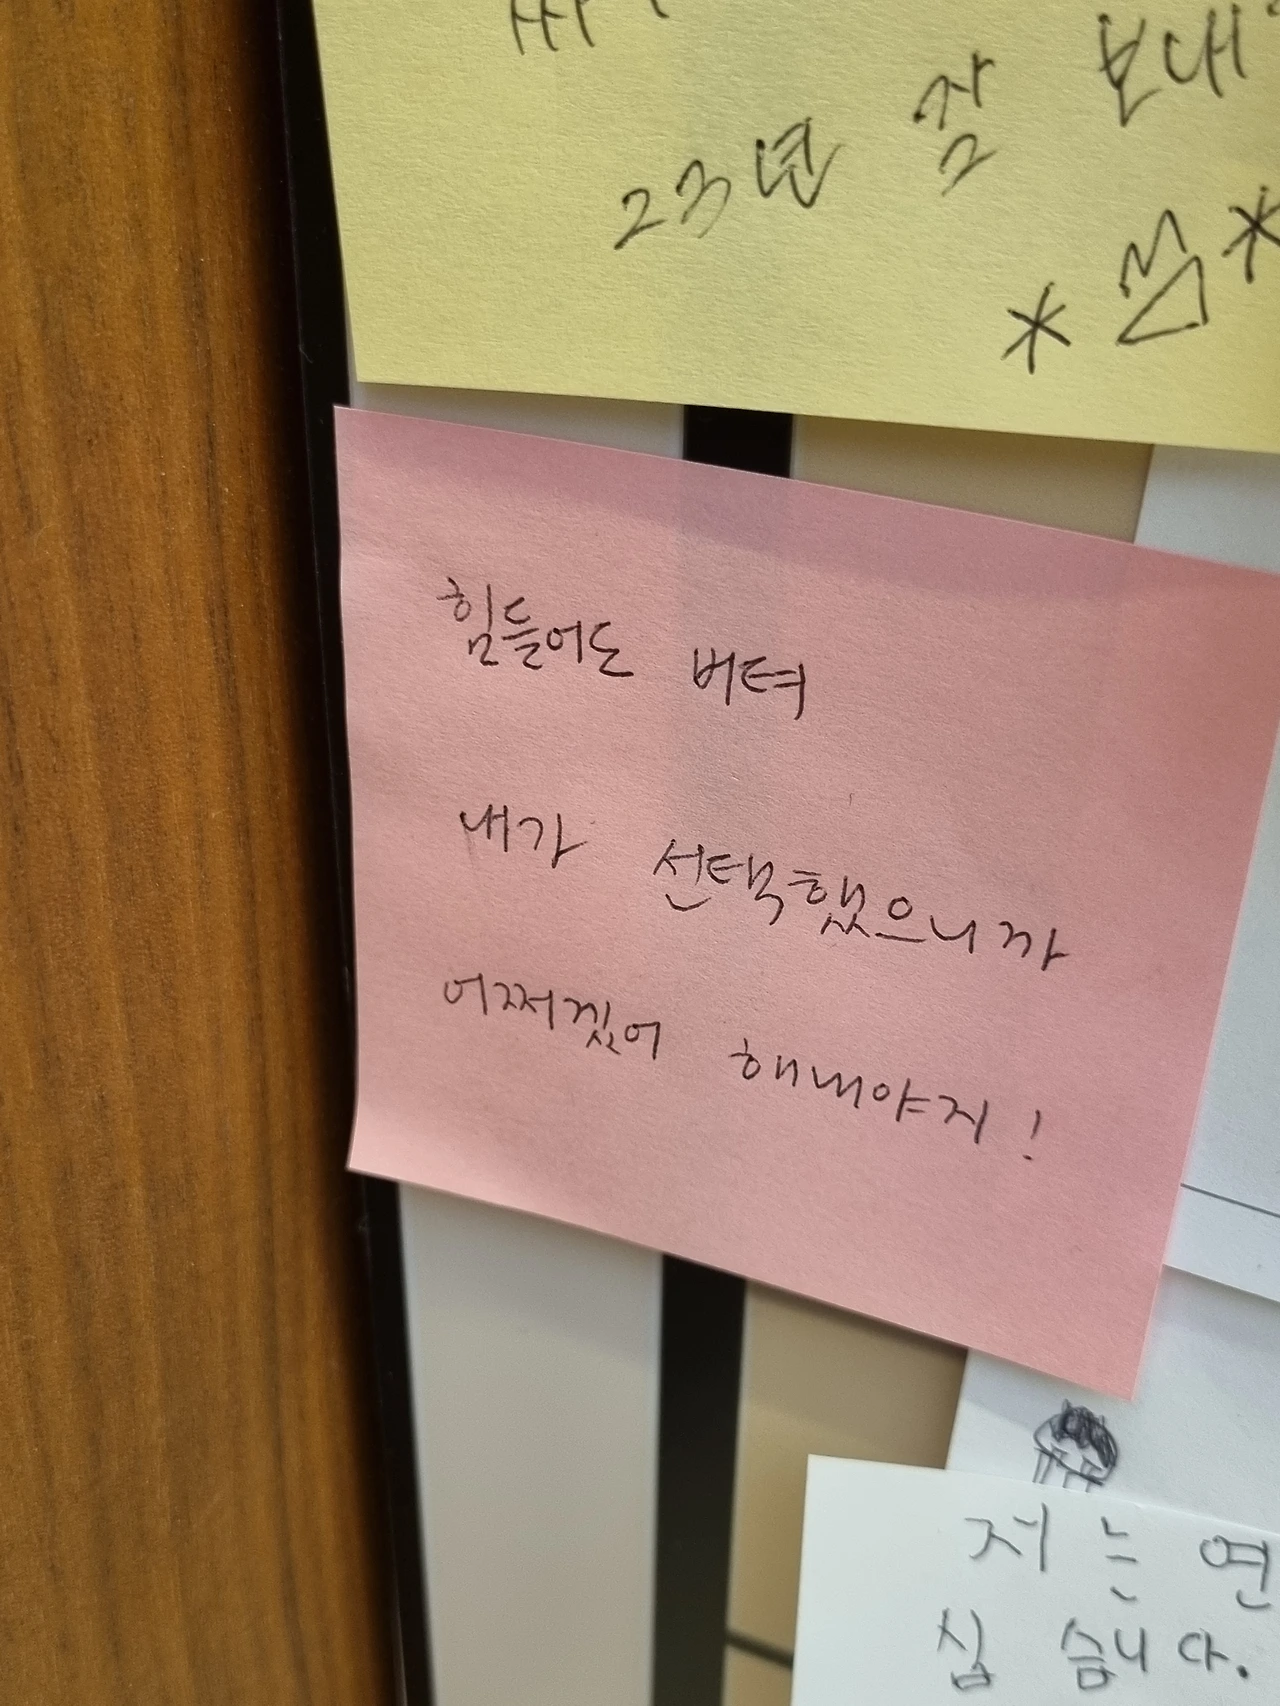 23년 잘 보내
힘들어도 버텨
내가 선택했으니까
어쩌겠어 해내야지!
저는 연
싶습니다.